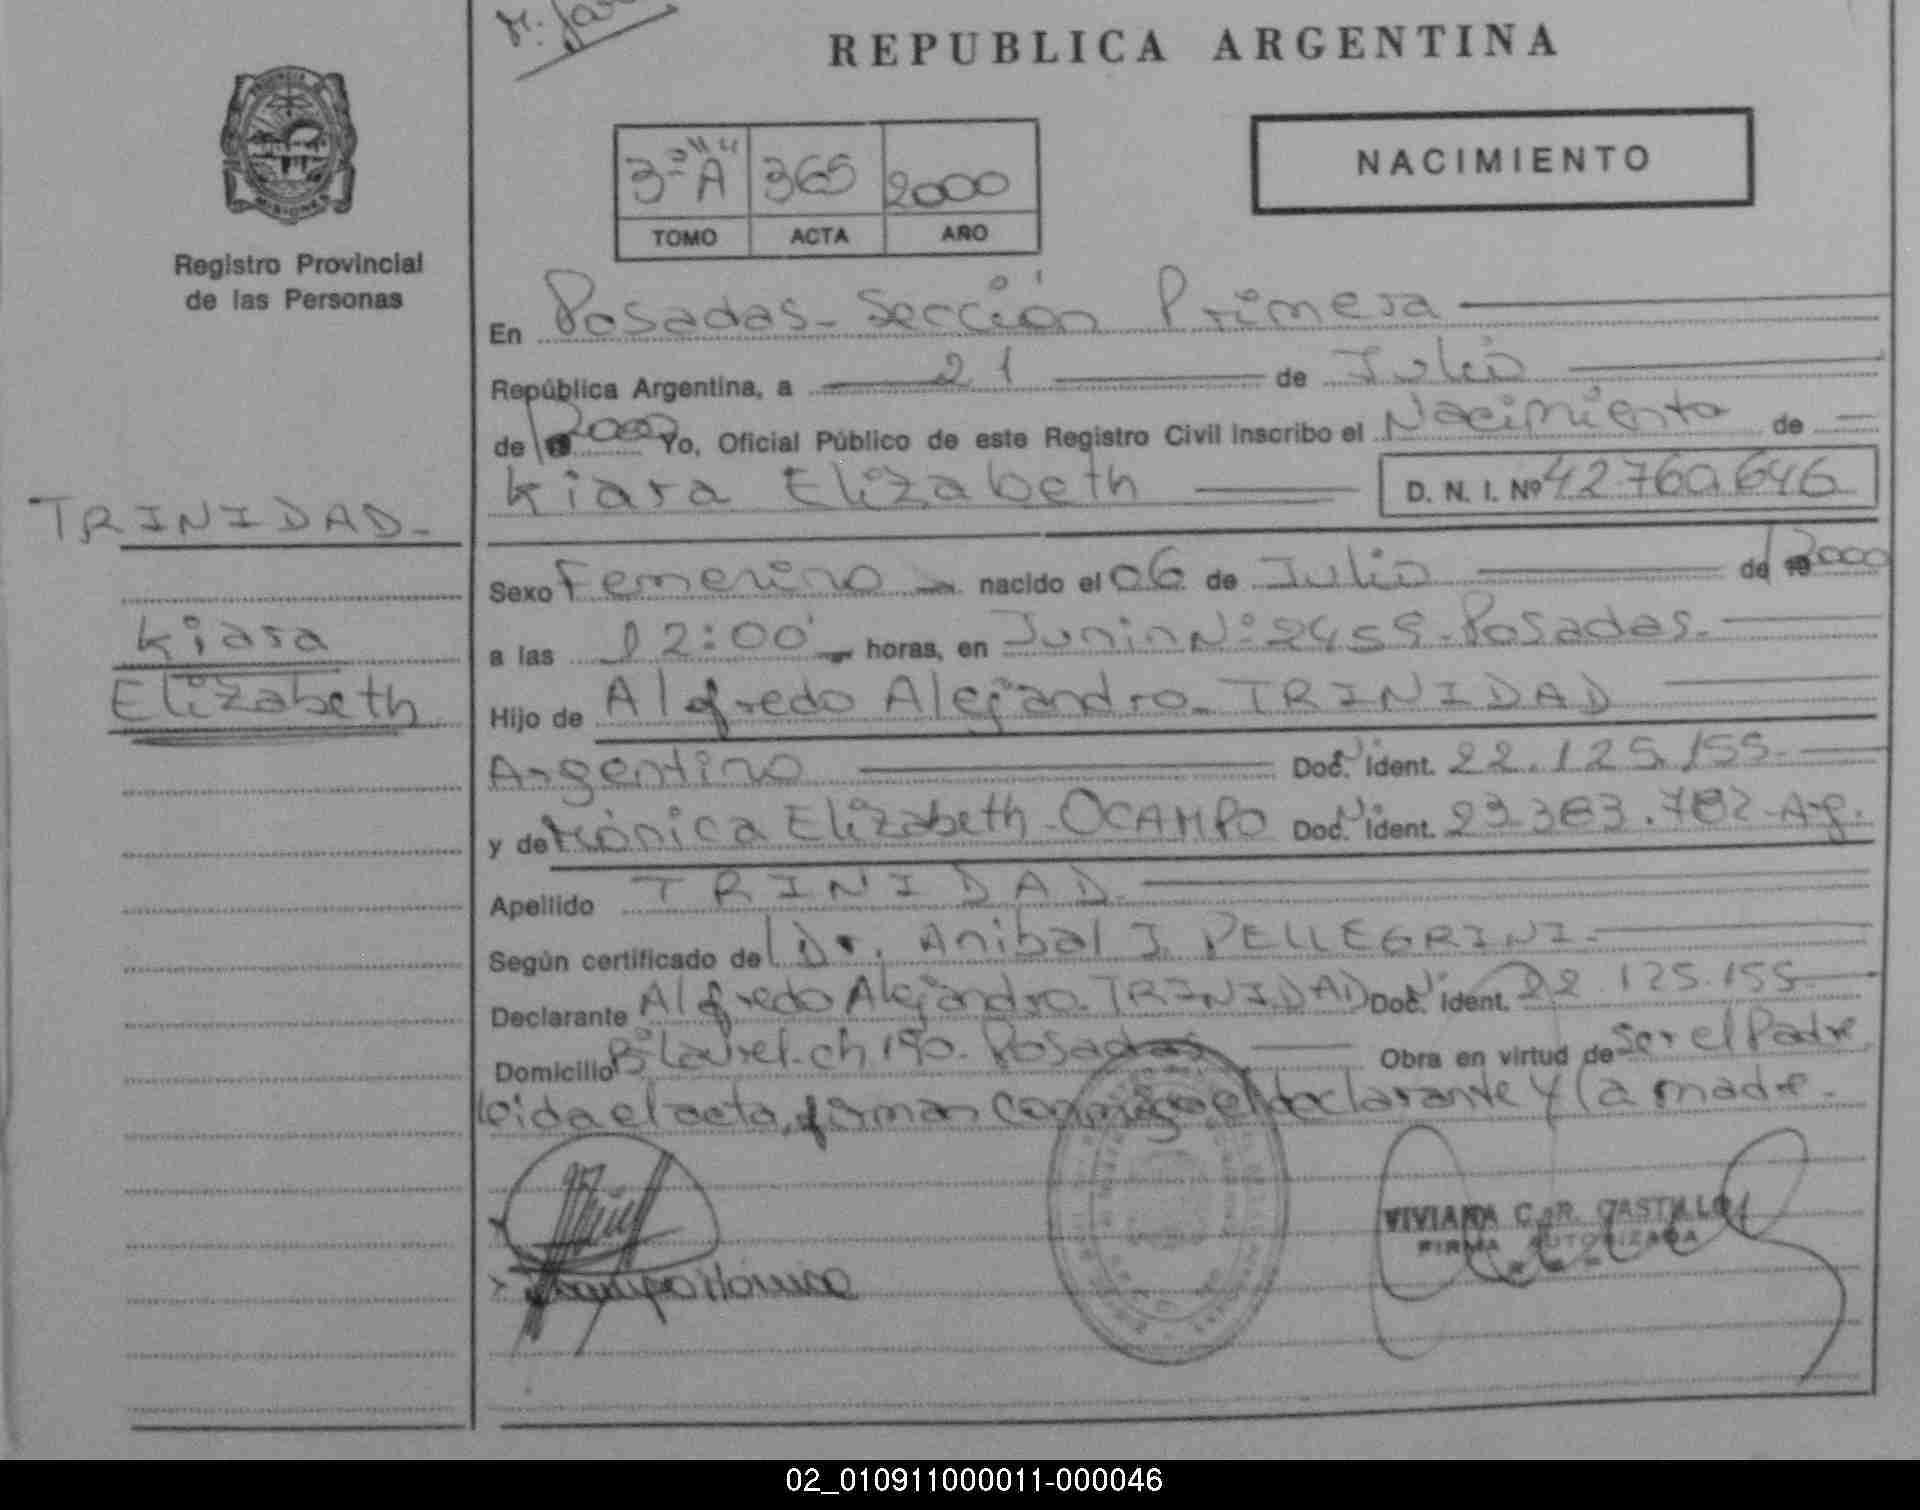 REPUBLICA ARGENTINA
PROVINCIA
MISIONES
Registro Provincial
de las Personas
3º "A" 365 2000
TOMO ACTA AÑO
NACIMIENTO
En Posadas - Sección Primera
República Argentina, a 21 de Julio
de 2000 Yo, Oficial Público de este Registro Civil inscribo el Nacimiento de
Kiara Elizabeth D. N. I. Nº 42760.646
TRINIDAD-
Kiara
Elizabeth
Sexo Femenino nacido el 06 de Julio de 2000
a las 12:00 horas, en Junin Nº 2459 - Posadas.
Hijo de Alfredo Alejandro - TRINIDAD
Argentino Doc. Ident. 22.125.155-
y de Mónica Elizabeth - OCAMPO Doc. Ident. 23.383.782-Arg.
Apellido TRINIDAD-
Según certificado de Dr. Anibal J. PELLEGRINI-
Declarante Alfredo Alejandro - TRINIDAD Doc. Ident. 22.125.155-
Domicilio Bº Laurel - ch 190 - Posadas Obra en virtud de ser el Padre
leida el acta, firman conmigo el declarante y la madre-
Ocampo Mónica
VIVIANA C. R. CASTILLO
FIRMA AUTORIZADA
02_010911000011-000046